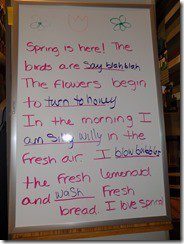 Spring is here! The
birds are Say blah blah
The flowers begin
to turn to honey
In the morning I
am silly willy in the
fresh air. I blow bubbles
the fresh lemonade
and wash fresh
bread. I love spring